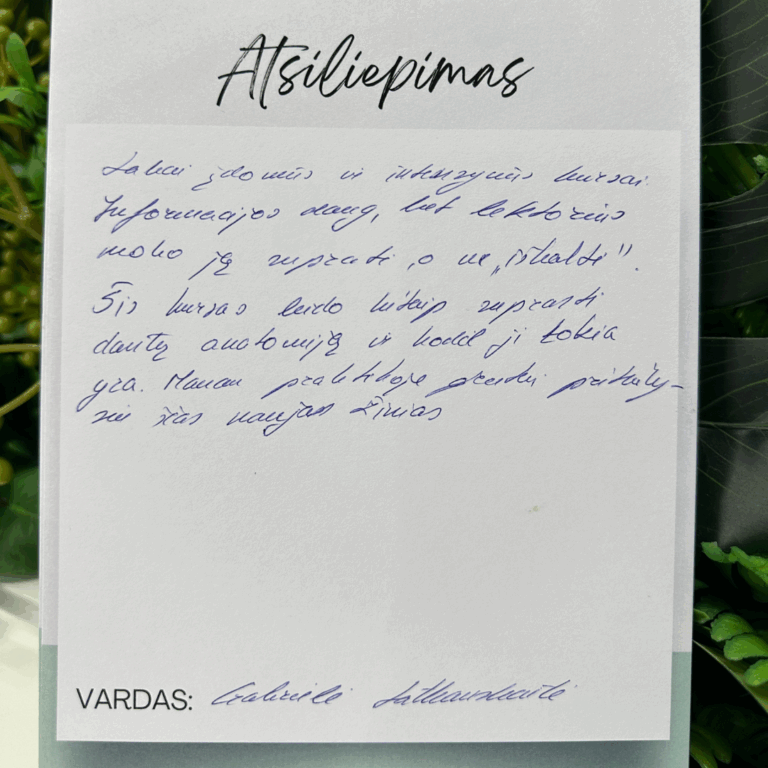 Atsiliepimas
Labai įdomūs ir intensyvūs kursai.
Informacijos daug, bet lektorius
moko ją suprasti, o ne „iškalti“.
Šis kursas leido kitaip suprasti
dantų anatomiją ir kodėl ji tokia
yra. Manau praktikoje pritaiky-
siu šias naujas žinias
VARDAS: Gabrielė